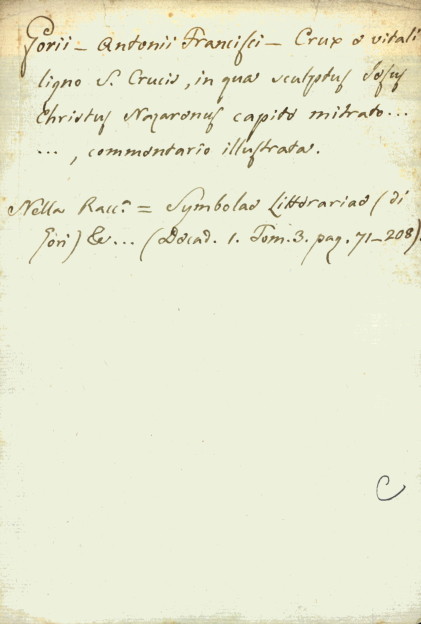 Gorii - Antonii Francisci - Crux e vitali
ligno S. Crucis, in qua sculptus Jesus
Christus Nazarenus capite mitrato...
..., commentario illustrata.
Nella Racc.ª = Symbolae Litterariae (di
Gori) &... (Decad. 1. Tom. 3. pag. 71-208).
C